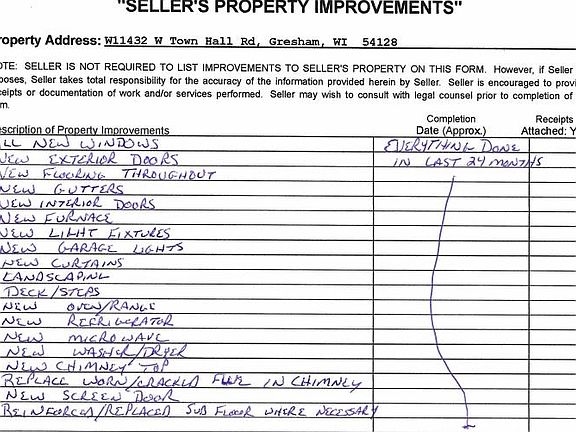 "SELLER'S PROPERTY IMPROVEMENTS"
roperty Address: W11432 W Town Hall Rd, Gresham, WI 54128
OTE: SELLER IS NOT REQUIRED TO LIST IMPROVEMENTS TO SELLER'S PROPERTY ON THIS FORM. However, if Seller
poses, Seller takes total responsibility for the accuracy of the information provided herein by Seller. Seller is encouraged to provi
ceipts or documentation of work and/or services performed. Seller may wish to consult with legal counsel prior to completion of
rm.
Completion Receipts
escription of Property Improvements Date (Approx.) Attached: Y
LL NEW WINDOWS EVERYTHING DONE
NEW EXTERIOR DOORS IN LAST 24 MONTHS
NEW FLOORING THROUGHOUT
NEW GUTTERS
NEW INTERIOR DOORS
NEW FURNACE
NEW LIGHT FIXTURES
NEW GARAGE LIGHTS
NEW CURTAINS
LANDSCAPING
DECK/STEPS
NEW OVEN/RANGE
NEW REFRIGERATOR
NEW MICROWAVE
NEW WASHER/DRYER
NEW CHIMNEY TOP
REPLACE WORN/CRACKED FLUE IN CHIMNEY
NEW SCREEN DOOR
REINFORCED/REPLACED SUB FLOOR WHERE NECESSARY